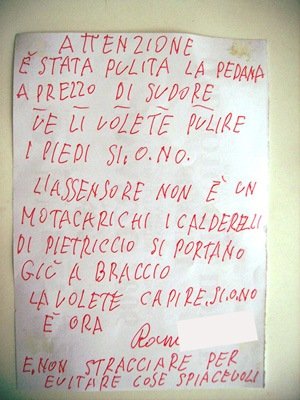 ATTENZIONE
È STATA PULITA LA PEDANA
A PREZZO DI SUDORE
VE LI VOLETE PULIRE
I PIEDI SI, O. NO.
L'ASSENSORE NON È UN
MOTACARICHI I CALDERELLI
DI PIETRICCIO SI PORTANO
GIÙ A BRACCIO
LA VOLETE CAPIRE, SI, O NO
È ORA
E, NON STRACCIARE PER
EVITARE COSE SPIACEVOLI